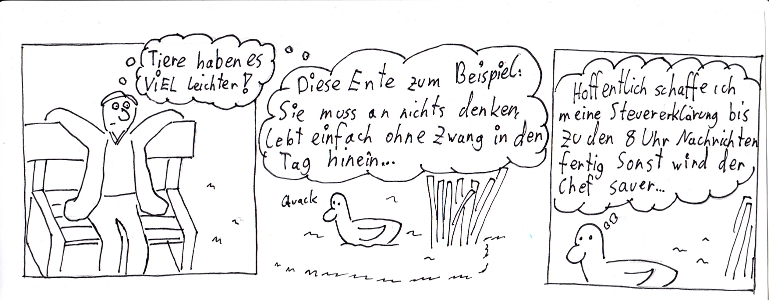 Tiere haben es
ViEL leichter!
Diese Ente zum Beispiel:
Sie muss an nichts denken,
Lebt einfach ohne Zwang in den
Tag hinein...
Quack
Hoffentlich schaffe ich
meine Steuererklärung bis
Zu den 8 Uhr Nachrichten
fertig Sonst wird der
Chef sauer...